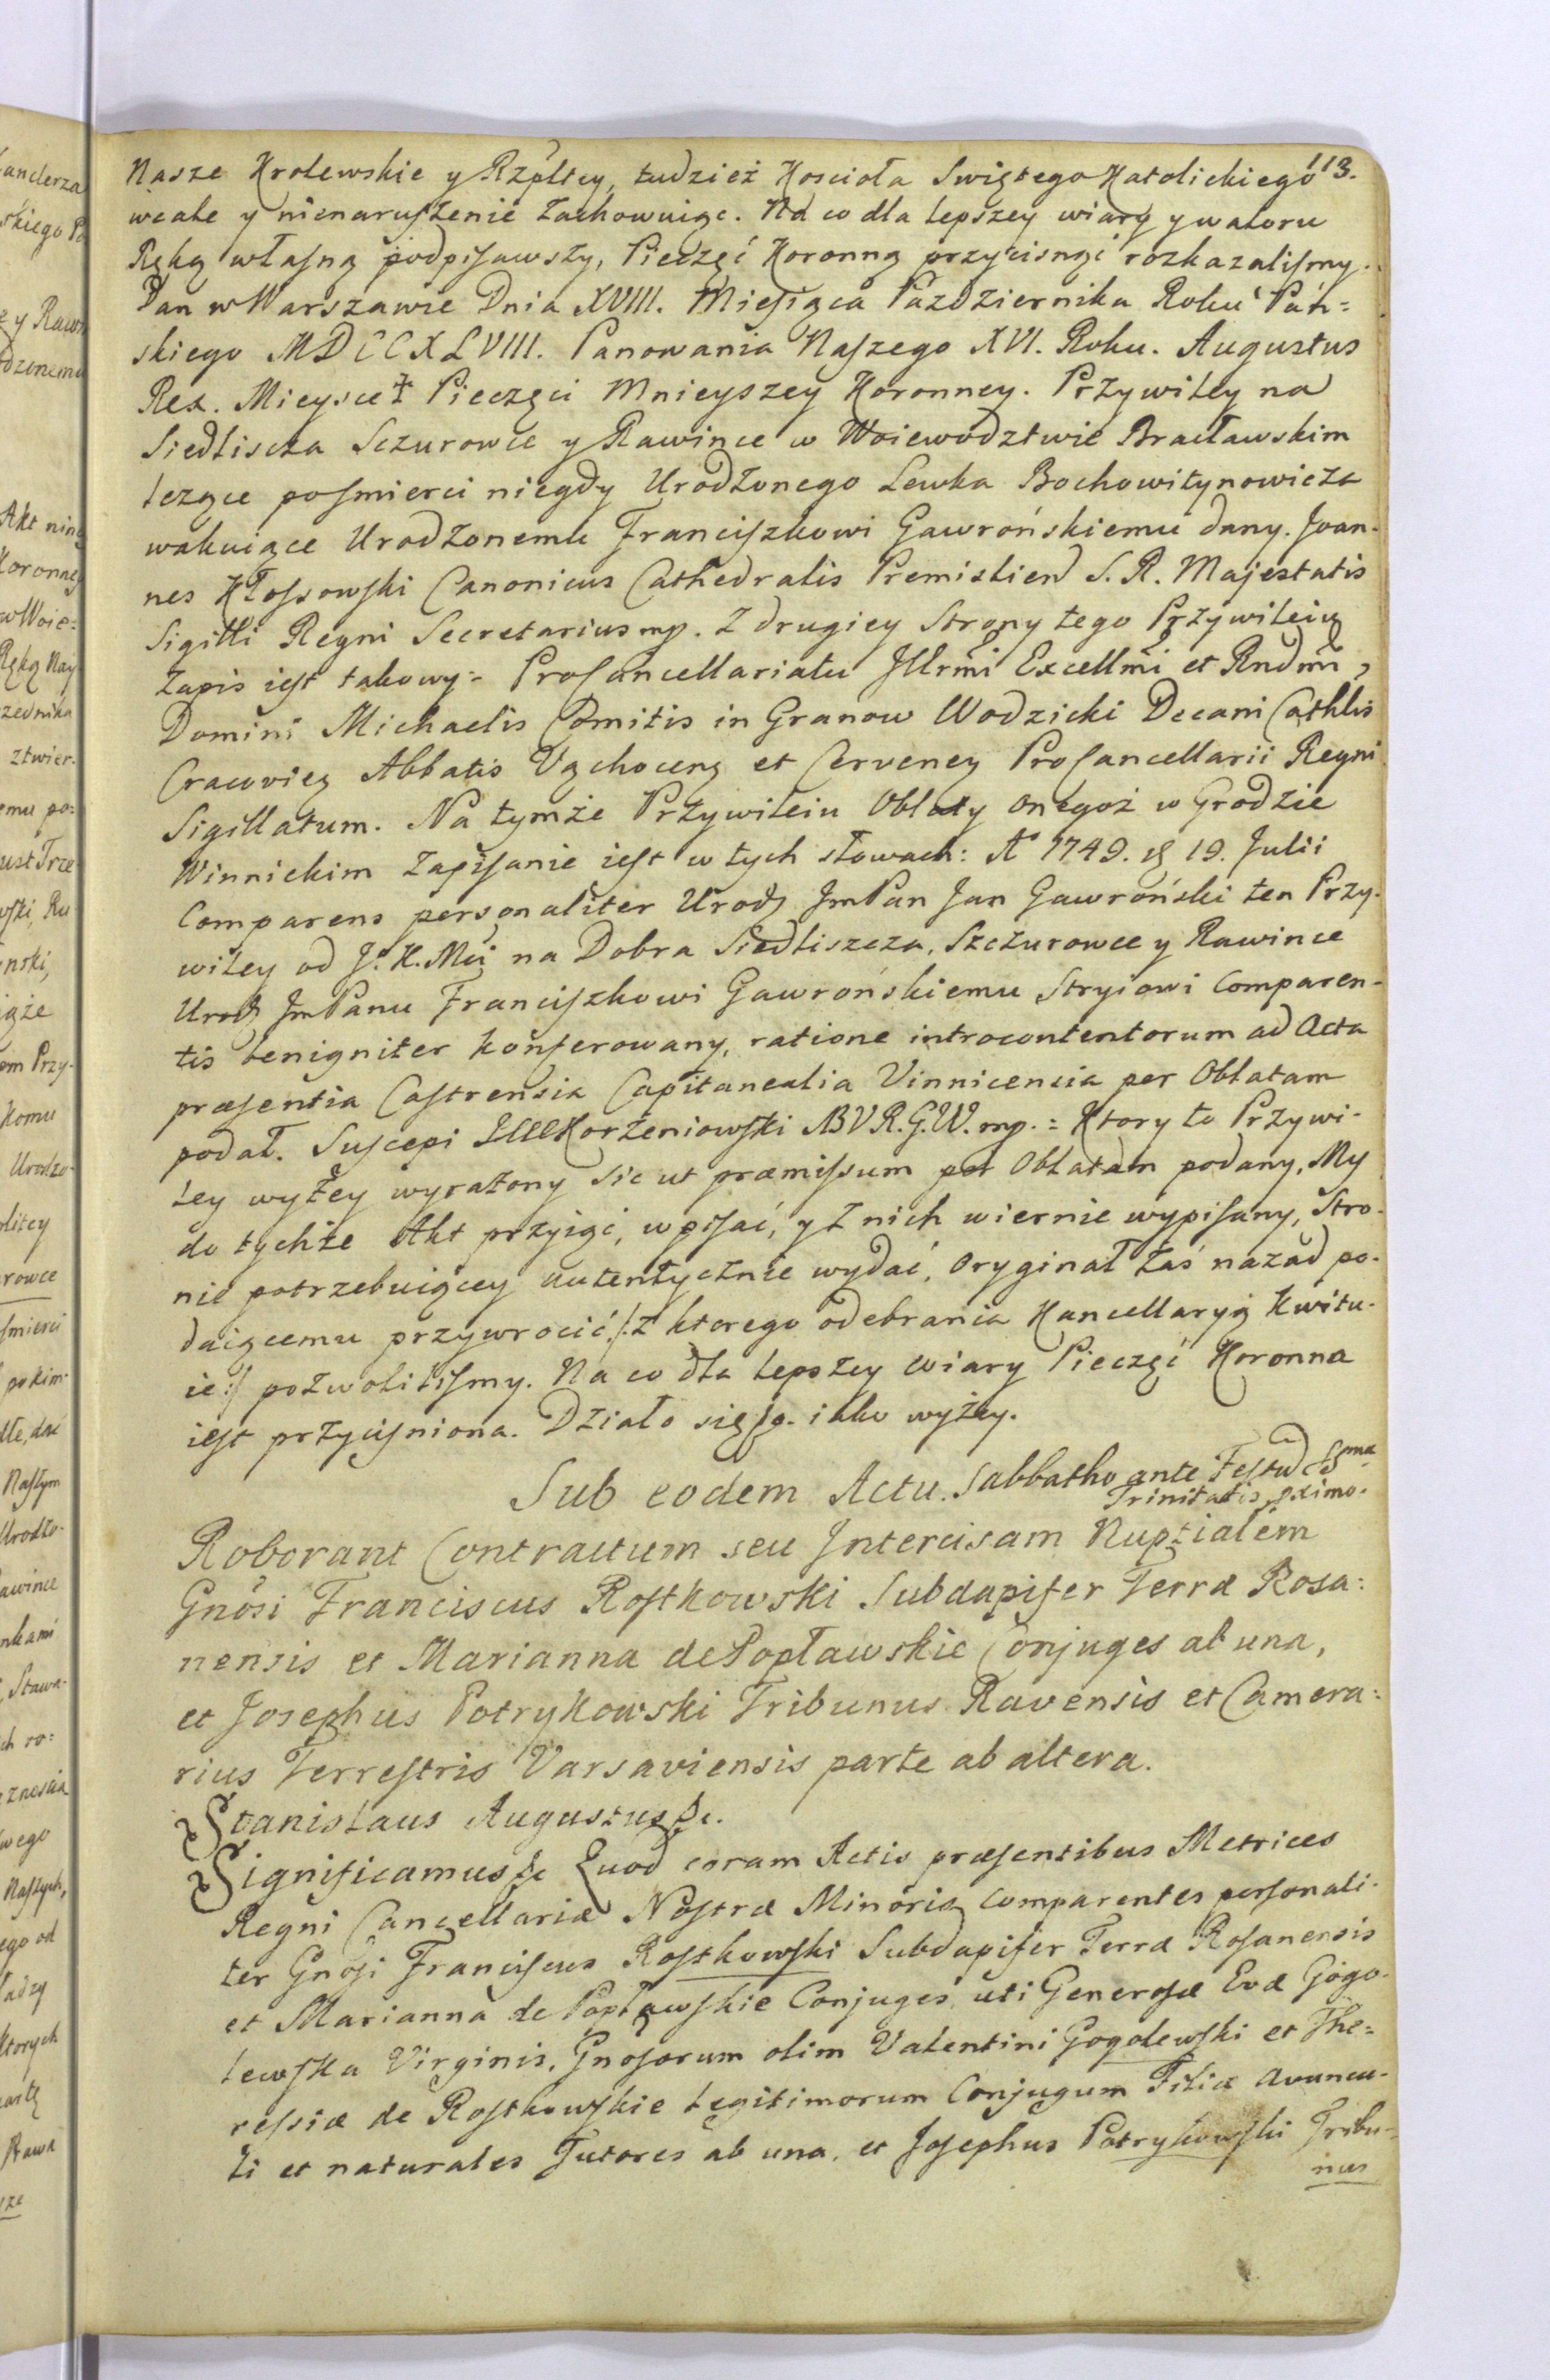 Nasze Krolewskie y Rzpltey, tudzież Koscioła Swiętego Katolickiego 13.
wcale y nienaruszenie zachowuiąc. Na co dla lepszey wiary y waloru
Ręką własną podpisawszy, Pieczęć Koronną przycisnąć rozkazalismy.
Dan w Warszawie Dnia XVIII. Miesiąca Pazdziernika Roku Pań=
skiego MDCCXLVIII. Panowania Naszego XVI. Roku. Augustus
Rex. Mieysce Pieczęci Mnieyszey Koronney. Przywiley na
Siedliscza Sczurowce y Rawince w Woiewodztwie Bracławskim
leżące posmierci niegdy Urodzonego Lewka Bochowitynowicza
wakuiące Urodzonemu Franciszkowi Gawrońskiemu dany. Joan-
nes Kłossowski Canonicus Cathedralis Premislien S. R. Majestatis
Sigilli Regni Secretarius mp. Z drugiey Strony tego Przywileiu
Zapis iest takowy:- ProCancellariatu Jllrmi Excellmi et Rndmi,
Domini Michaelis Comitis in Granow Wodzicki Decani Cathlis
Cracovieg Abbatis Vąchoceng et Cerveney ProCancellarii Regni
Sigillatum. Na tymże Przywileiu Oblaty onegoż w Grodzie
Winnickim Zapisanie iest w tych słowach: A° 1749. d 19. Julii
Comparens personaliter Urodz JmPan Jan Gawroński ten Przy-
wiley od J. K. Mci na Dobra Siedliszcza, Szczurowce y Rawince
Urodz JmPanu Franciszkowi Gawrońskiemu Stryiowi Comparen-
tis benigniter konferowany, ratione introcontentorum ad Acta
præsentia Castrensia Capitanealia Vinnicencia per Oblatam
podał. Suscepi Korzeniowski NBVR.G.W. mp. = Ktory to Przywi-
ley wyżey wyrażony sic ut præmissum per Oblatam podany, My
do tychże Akt przyiąć, wpisać, y z nich wiernie wypisany, Stro-
nie potrzebuiącey autentycznie wydać, Oryginał zaś nazad po-
daiącemu przywrocić /: z ktorego odebrania Kancellaryą kwitu-
ie :/ pozwolilismy. Na co dla lepszey wiary Pieczęć Koronna
iest przycisniona. Działo się &c. iako wyżey.
Sub eodem Actu. Sabbatho ante Festud SSma
Trinitatis pximo.
Roborant Contractum seu Jntercisam Nuptialem
Gnosi Franciscus Rostkowski Subdapifer Terræ Rosa=
nensis et Marianna de Popławskie Conjuges ab una,
et Josephus Potrykowski Tribunus Ravensis et Camera=
rius Terrestris Varsaviensis parte ab altera.
Stanislaus Augustus &c.
Significamus &c Quod coram Actis præsentibus Metrices
Regni Cancellariæ Nostræ Minoris comparentes personali-
ter Gnosi Franciscus Rostkowski Subdapifer Terræ Rosanensis
et Marianna de Popławskie Conjuges, uti Generosæ Evæ Gogo-
lewska Virginis, Gnosorum olim Valentini Gogolewski et The=
ressiæ de Rostkowskie Legitimorum Conjugum Filiæ Avuncu-
li et naturales Tutores ab una, et Josephus Potrykowski Tribu-
nus